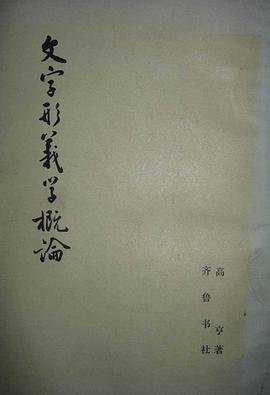 文字形義学概論
高亨著
齐鲁书社